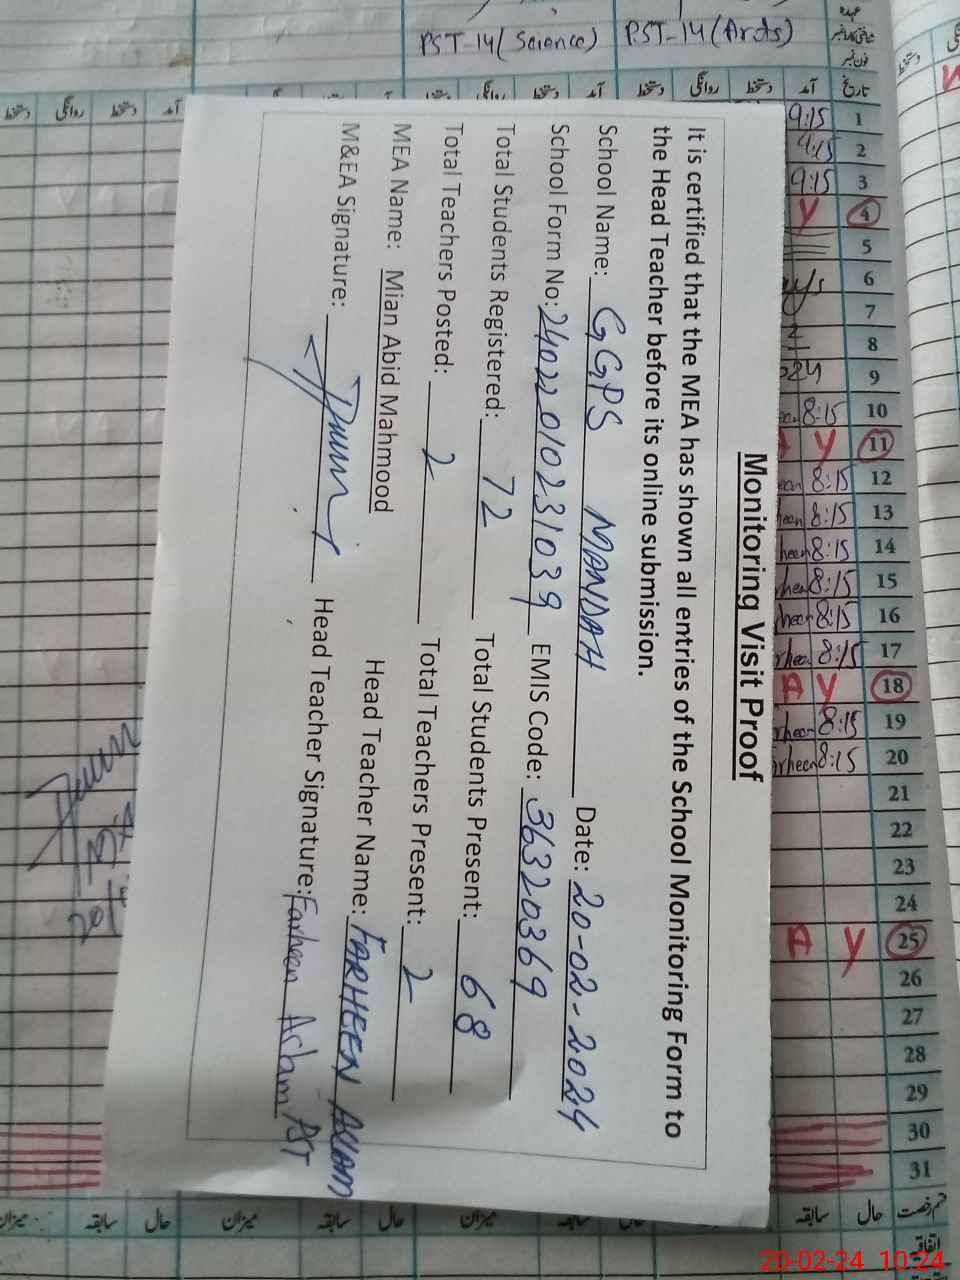 PST-14 (Science) PST-14 (Arts)
عہدہ
فون نمبر
تاریخ آمد دستخط روانگی دستخط آمد دستخط روانگی دستخط
Monitoring Visit Proof
It is certified that the MEA has shown all entries of the School Monitoring Form to
the Head Teacher before its online submission.
School Name: GGPS MANDAH Date: 20-02-2024
School Form No: 24022010231039 EMIS Code: 36320369
Total Students Registered: 72 Total Students Present: 68
Total Teachers Posted: 2 Total Teachers Present: 2
MEA Name: Mian Abid Mahmood Head Teacher Name: FARHEEN ASLAM
M&EA Signature: Head Teacher Signature: Farheen Aslam PST
9:15 1
9:15 2
9:15 3
Y 4
5
6
7
8
9
8:15 10
Y 11
8:15 12
8:15 13
heen 8:15 14
heen 8:15 15
heen 8:15 16
rheen 8:15 17
A Y 18
rheen 8:15 19
rheen 8:15 20
21
22
23
24
A Y 25
26
27
28
29
30
31
قسم رخصت حال سابقہ میزان حال سابقہ میزان
اتفاقیہ
20-02-24 10:24